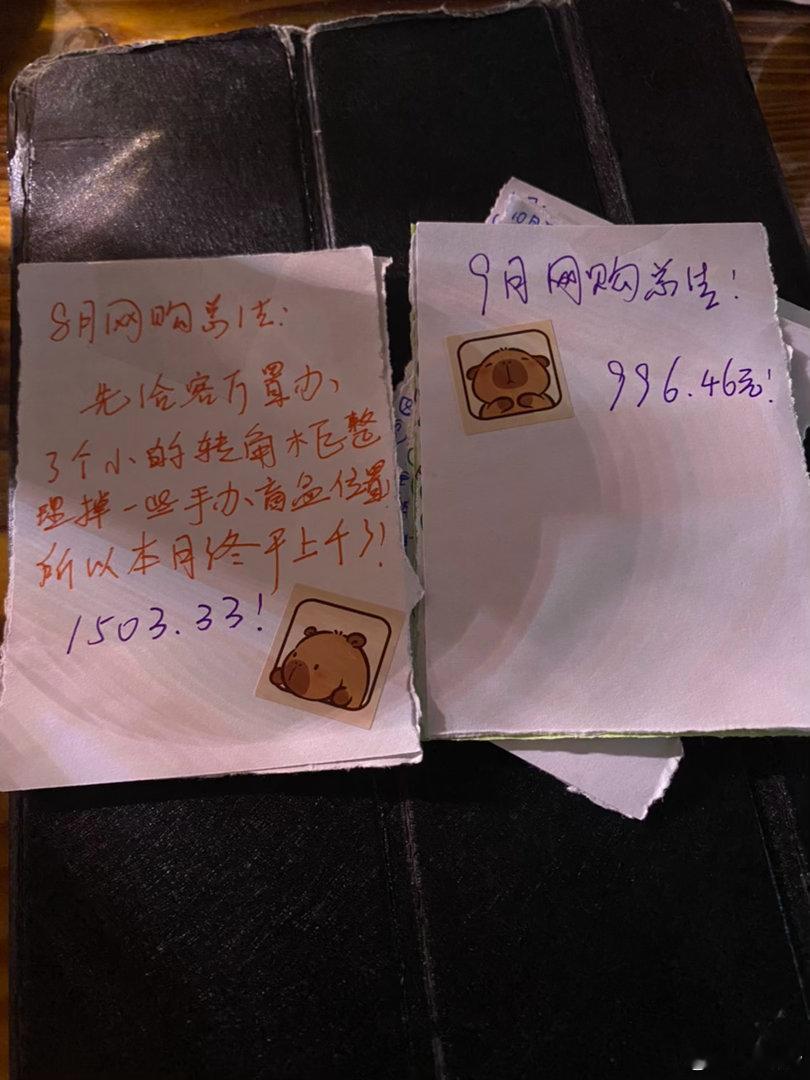 8月网购总结:
先给客厅置办
了个小的转角木柜整
理掉一些手办盲盒位置
所以本月终于上千了!
1503.33!
9月网购总结!
996.46元!
10月